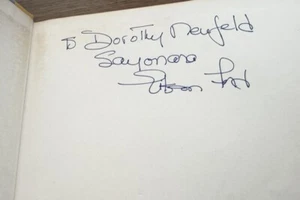 to Dorothy Neufeld
Sayonara